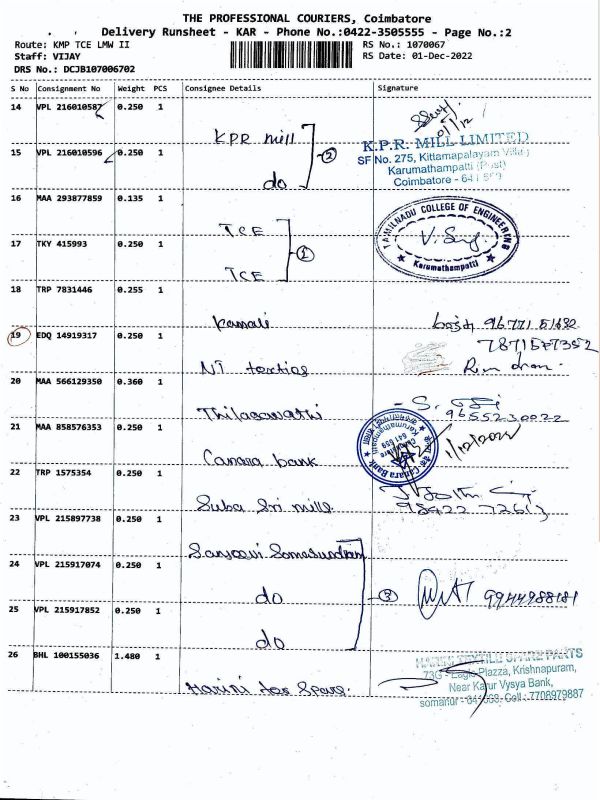 THE PROFESSIONAL COURIERS, Coimbatore
Delivery Runsheet - KAR - Phone No.:0422-3505555 - Page No.:2
Route: KMP TCE LMW II RS No.: 1070067
Staff: VIJAY RS Date: 01-Dec-2022
DRS No.: DCJB107006702
S No Consignment No Weight PCS Consignee Details Signature
14 VPL 216010587 0.250 1
KPR mill
K.P.R. MILL LIMITED
15 VPL 216010596 0.250 1
②
SF No. 275, Kittampalayam
Karumathampatti (Post)
do
Coimbatore - 641 659
16 MAA 293877859 0.135 1
TCE
TAMILNADU COLLEGE OF ENGINEERING
Karumathampatti
17 TKY 415993 0.250 1
①
TCE
18 TRP 7831446 0.255 1
Kamali
96771 51682
19 EDQ 14919317 0.250 1
7871577352
NT
20 MAA 566129350 0.360 1
Thilagawathi
S.
9655230022
21 MAA 858576353 0.250 1
Canara bank
Canara Bank
Karumathampatti
641 659
1/12/2022
22 TRP 1575354 0.250 1
Suba Sri mills
98422 72613
23 VPL 215897738 0.250 1
24 VPL 215917074 0.250 1
do
③
9944988181
25 VPL 215917852 0.250 1
do
26 BHL 100155036 1.480 1
TEXTILE SPARE PARTS
Harini tex Spare.
73G - Eagle Plazza, Krishnapuram,
Near Karur Vysya Bank,
somanur - 641 668. Cell : 7708979887